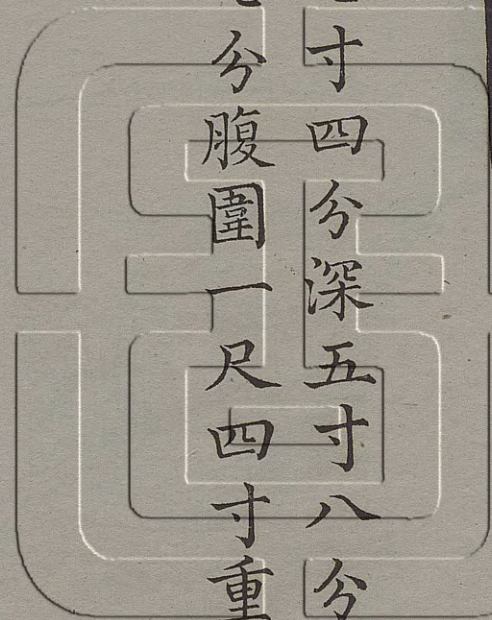 寸四分深五寸八分
分腹圍一尺四寸重